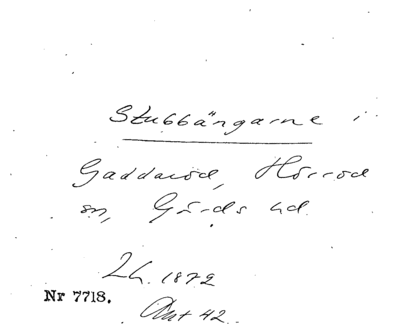 Stubbängarne i
Gaddaröd, Hörröd
sn, Gärds hd.
Lh. 1872
Nr 7718.
Akt 42.